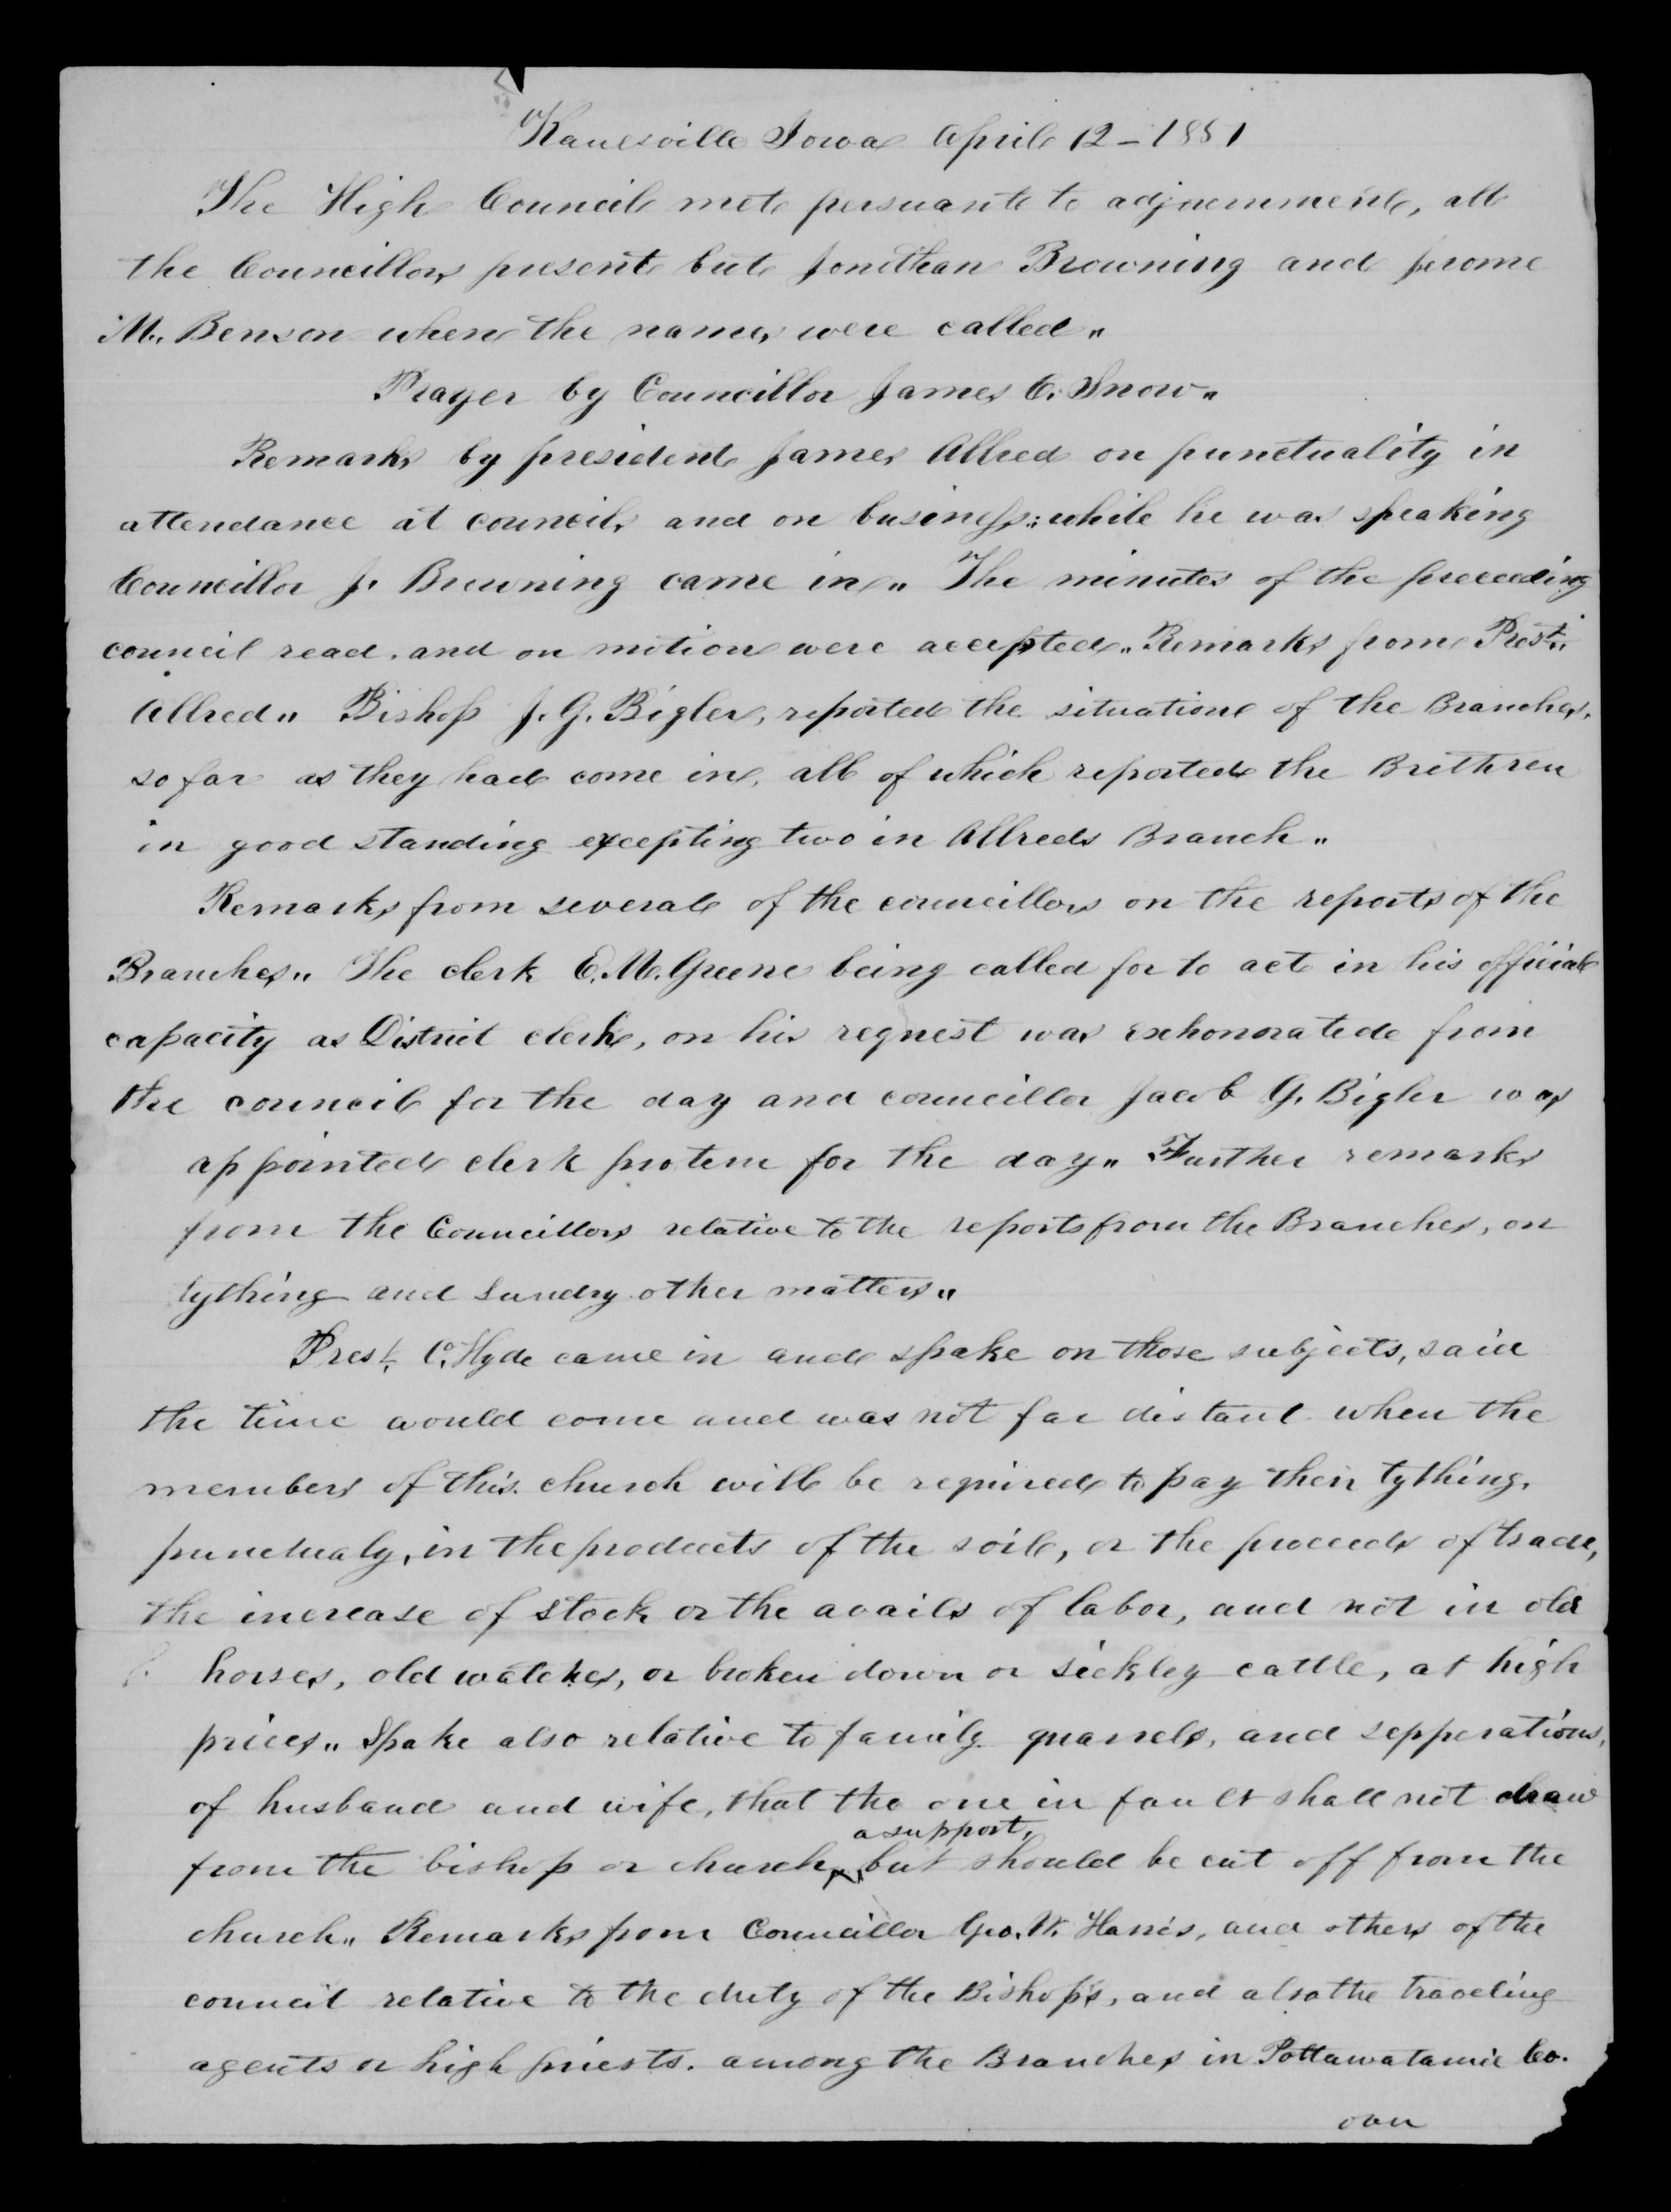 Kanesville Iowa April 12 - 1851
The High Council met persuant to adjournment, all
the Councillors present but Jonithan Browning and Jerome
M. Benson when the names were called "
Prayer by Councillor James C. Snow "
Remarks by president James Allred on punctuality in
attendance at council, and on business: while he was speaking
Councillor J. Browning came in " The minutes of the preceeding
council read. and on motion were accepted " Remarks from Prest.
Allred " Bishop J. G. Bigler, reported the situation of the Branches,
so far as they had come in, all of which reported the Brethren
in good standing excepting two in Allreds Branch "
Remarks from several of the councillors on the reports of the
Branches " The clerk E. M. Greene being called for to act in his official
capacity as District clerk, on his request was exhonorated from
the council for the day and councillor Jacob G. Bigler was
appointed clerk protem for the day " Further remarks
from the Councillors relative to the reports from the Branches, on
tything and sundry other matters "
Prest. O. Hyde came in and spake on those subjects, said
the time would come and was not far distant when the
members of this church will be required to pay their tything,
punctualy, in the products of the soil, or the proceeds of trade,
the increase of stock or the avails of labor, and not in old
horses, old watches, or broken down or sickley cattle, at high
prices " Spake also relative to family quarrels, and sepperations,
of husband and wife, that the one in fault shall not draw
a support,
from the bishop or church, but should be cut off from the
church " Remarks from Councillor Geo. W. Harris, and others of the
council relative to the duty of the Bishops, and also the traveling
agents or high priests. among the Branches in Pottawatamie Co.
over